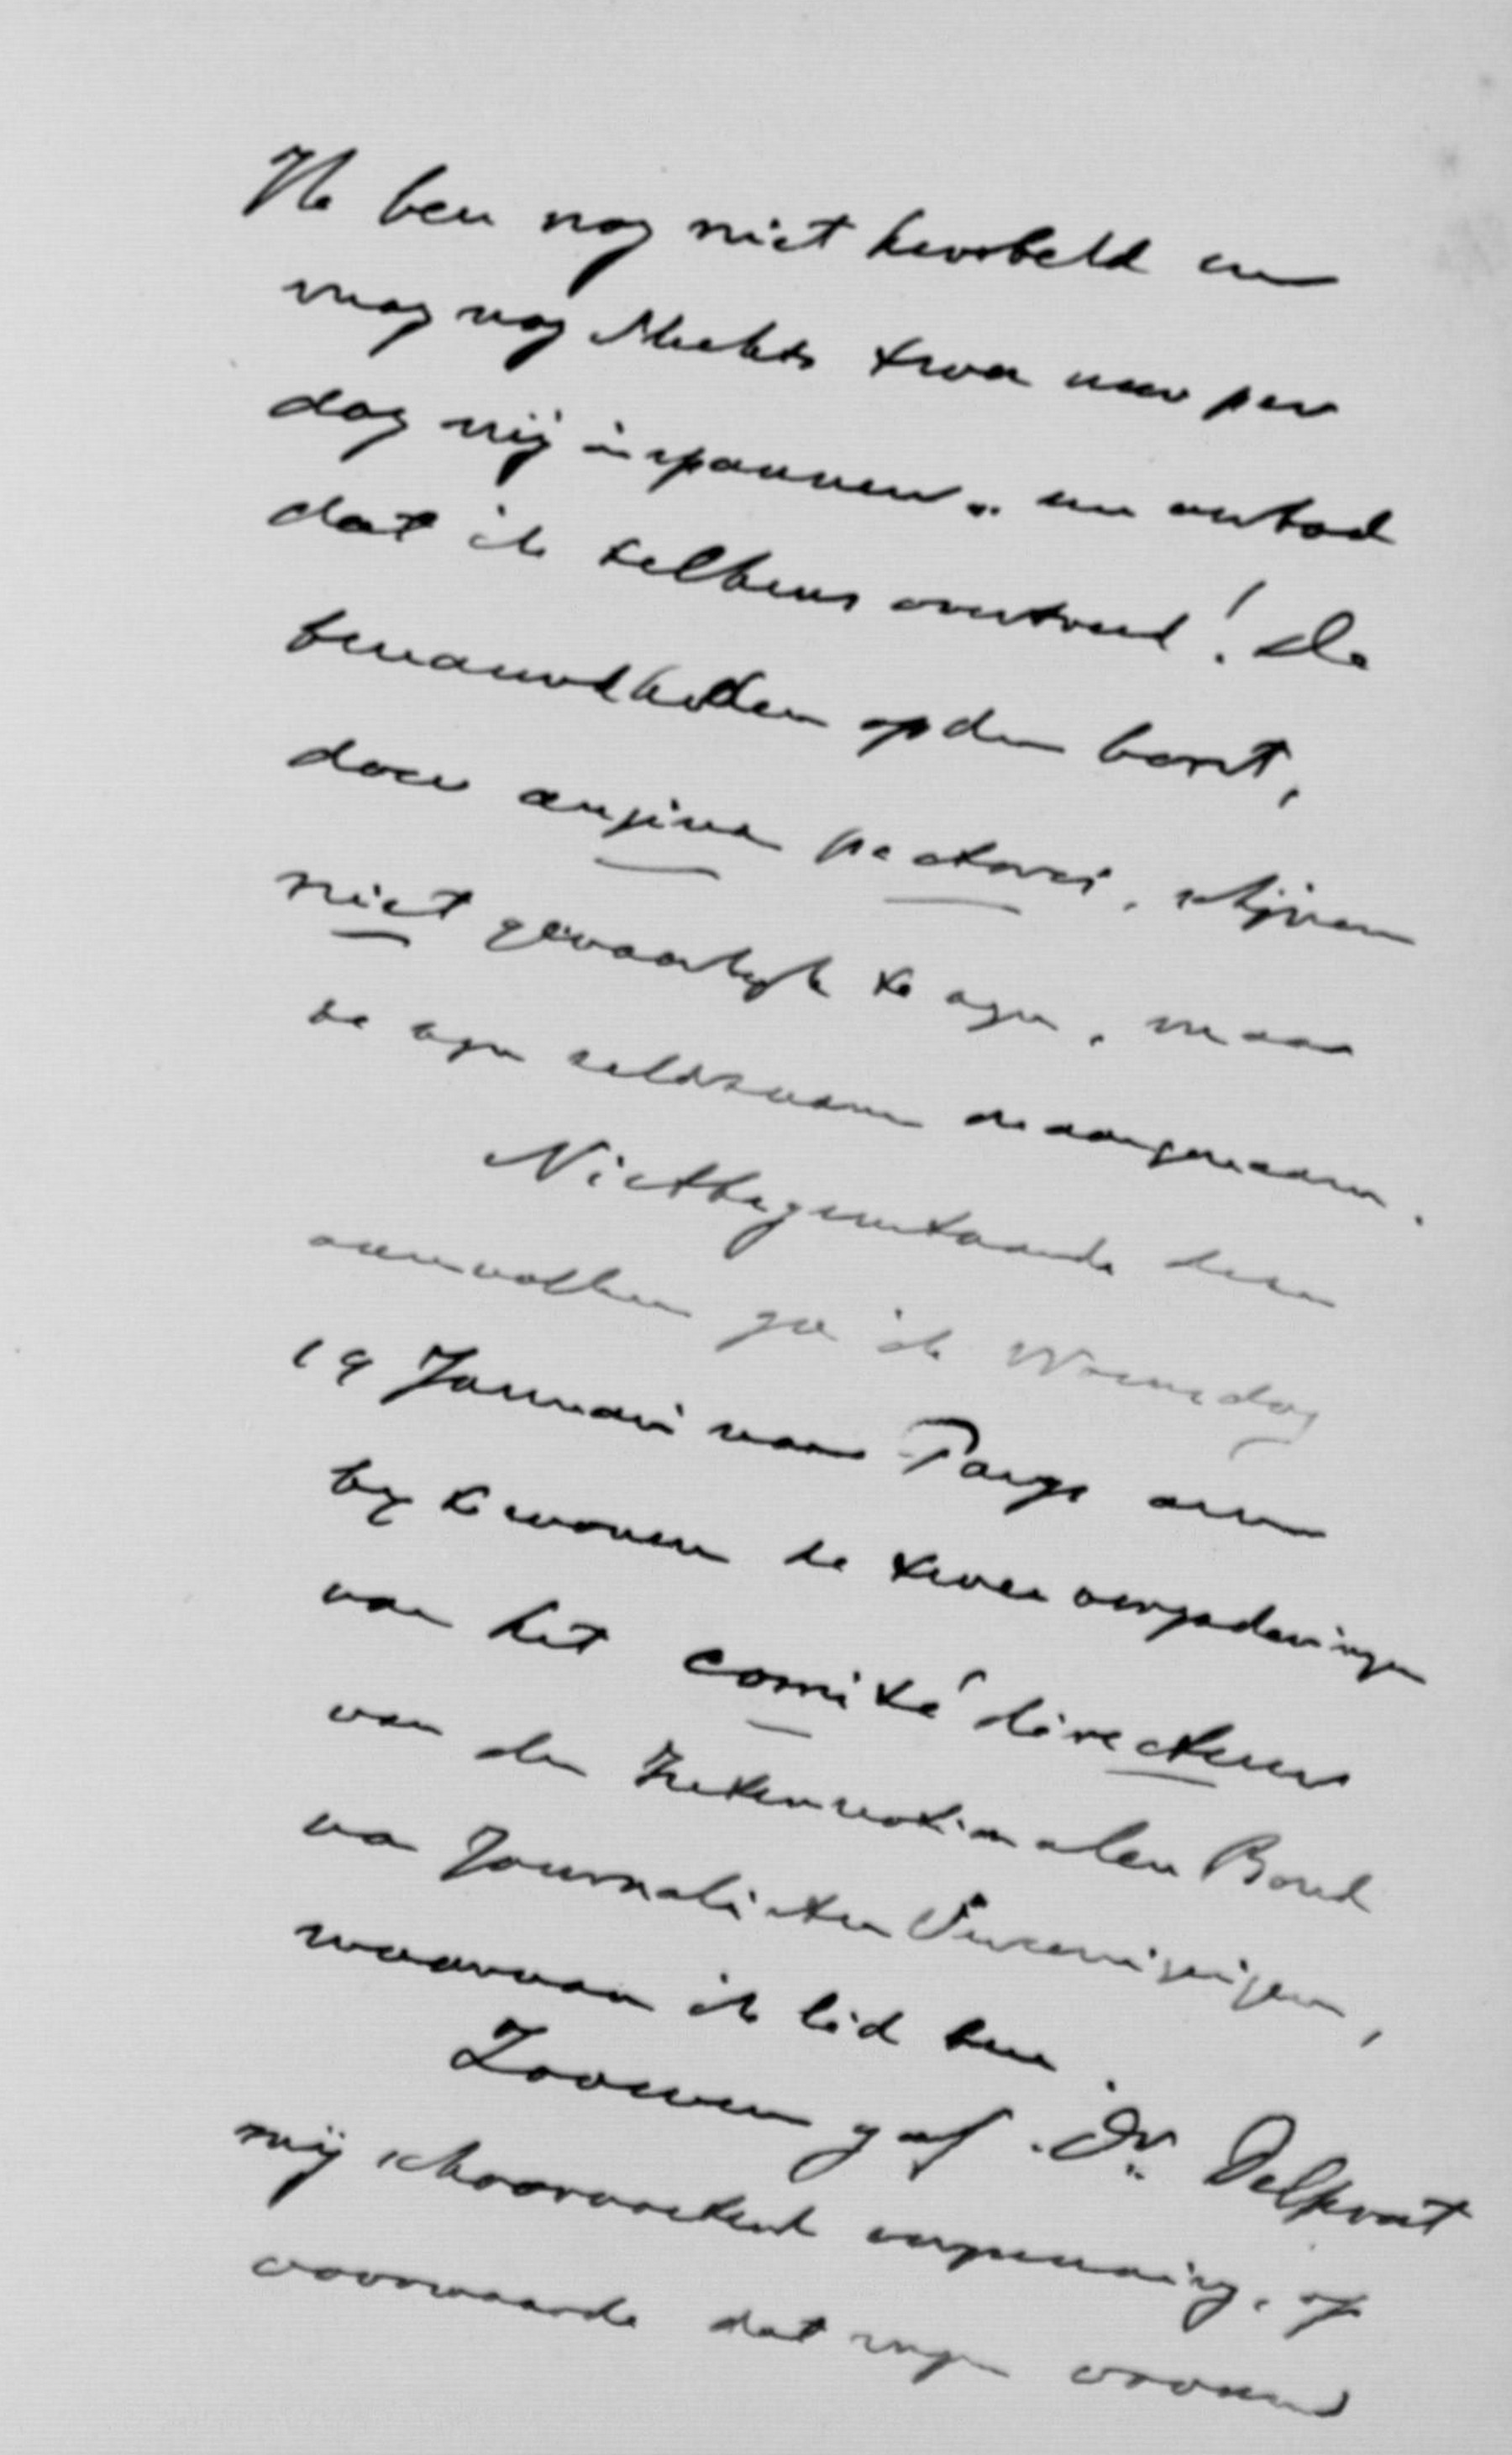 Ik ben nog niet hersteld en
mag nog slechts twee uur per
dag mij inspannen.. een verbod
dat ik telkens overtreed! De
benauwdheden op den borst,
door angina pectoris, schijnen
niet gevaarlijk te zijn, maar
ze zijn zeldzaam onaangenaam.
Niettegenstaande deze
aanvallen ga ik Woensdag
19 Januari naar Parijs om
bij te wonen de twee vergaderingen
van het comité directeur
van den Internationalen Bond
van Journalisten Vereenigingen,
waarvan ik lid ben.
Zooeven gaf Dr. Delprat
mij schoorvoetend vergunning, op
voorwaarde dat mijn